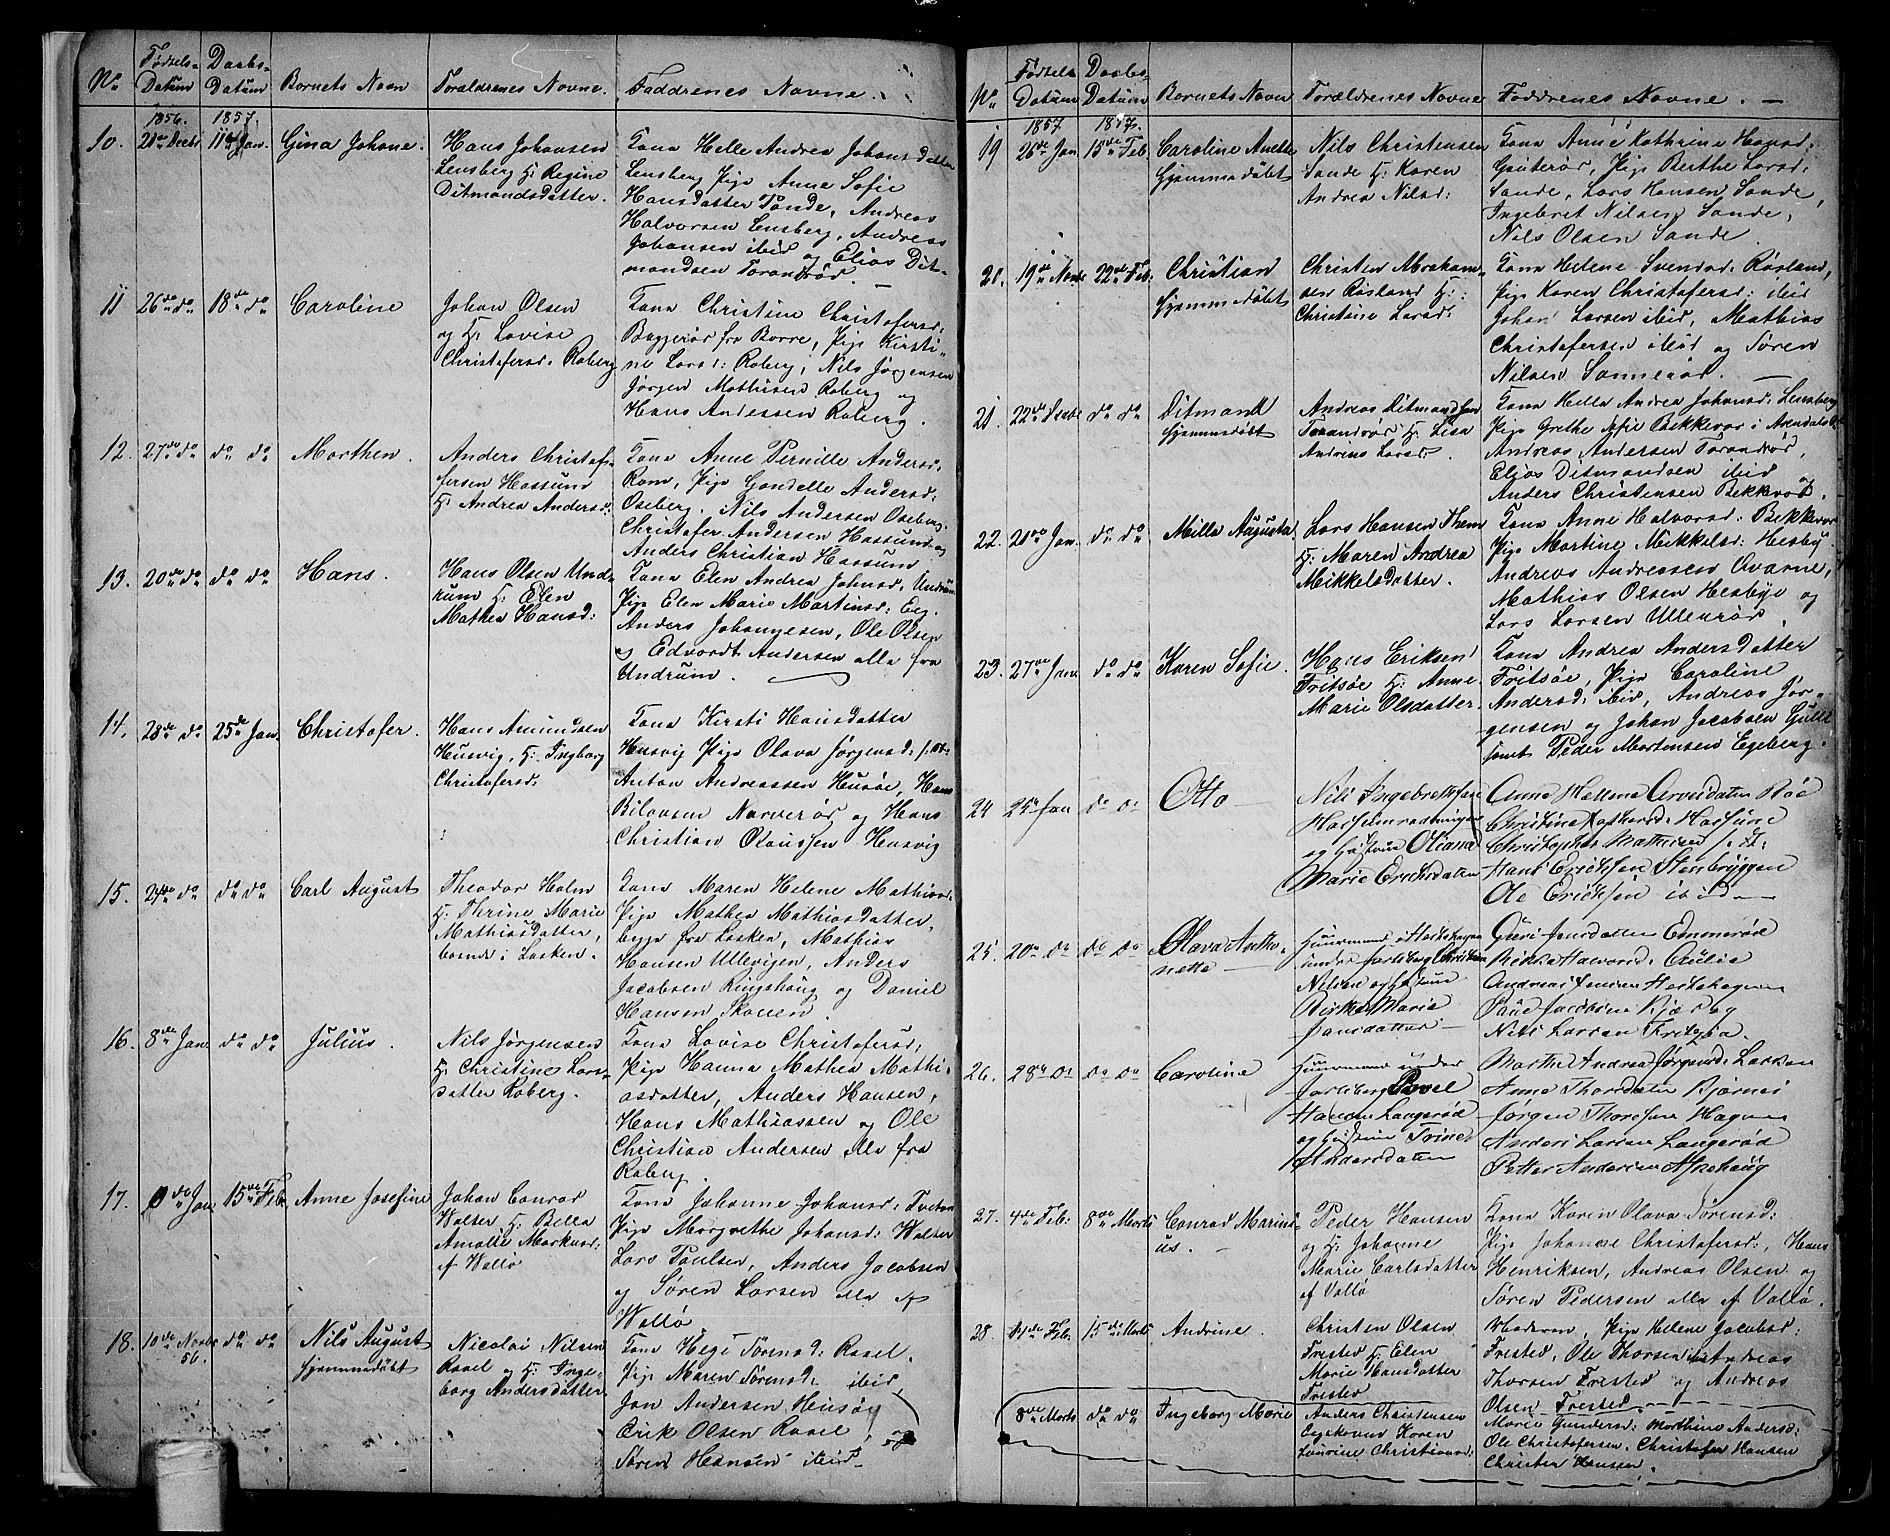 No Fødsels- Datum Daabs- Datum Bornets Navn Forældrenes Navne. Faddrenes Navne.
1856. 1857.
10. 11te Jan. Gina Johane. Hans Johansen Kona Helle Andrea Johansdatter
Lensberg H: Regine Lensberg Pige Anne Sofie
Ditmandsdatter. Hansdatter Tande, Andreas
Halvorsen Lensberg, Andreas
Johansen ibid og Elias Dit-
mandsen Forandrød.
11 26de do 18de do Caroline Johan Olsen Kona Christine Christofersd:
og H: Lovise Baggerør fra Borre, Pige Kirsti-
Christofersd. Roberg ne Larsd: Roberg, Nils Jørgensen
Jørgen Mathisen Roberg og
Hans Anderssen Roberg.
12. 27de do do do Marthen. Anders Christof- Kona Anne Pernille Andersd:
fersen Hassund Rom, Pige Gondelle Andersd:
H: Andrea Andersd: Oseberg. Nils Andersen Oseberg.
Christofer Andersen Hassund og
Anders Christian Hassum
13. 20de do do do Hans. Hans Olsen Und- Kona Elen Andrea Johnsd: Undrum
rum H: Elen Pige Elen Marie Martinsd: Eeg.
Mathea Hansd: Anders Johannesen, Ole Olsen
og Edvardt Andersen alle fra
Undrum.
14. 28de do 25de Jan. Christofer. Hans Amundsen Kona Kirsti Hansdatter
Husvig, H: Ingborg Husvig Pige Olava Jørgensd:
Christofersd: Anton Andreassen Husøe, Hans
Bilovsen Narverør og Hans
Christian Olaussen Husvig
15. 24de do do do Carl August Theodor Holm Kona Maren Helene Mathiasd:
H: Thrine Marie Pige Mathea Mathiasdatter,
Mathiasdatter, begge fra Lasken, Mathias
boende i Lasken. Hansen Ullevigen, Anders
Jacobsen Ringshaug og Daniel
Hansen Skouen.
16. 8de Jan do do Julius. Nils Jørgensen Kona Lovise Christofersd:
H: Christine Lars- Pige Hanna Mathea Mathi-
datter Roberg. asdatter, Anders Hansen,
Hans Mathiassen og Ole
Christian Andersen alle fra
Roberg
17. Jan 15de Feb. Anne Josefine Johan Conrad Kona Johanne Johansd:
Walter H: Bella Pige Margrethe Johansd: Walter
Amalie Markusd: Lars Paulsen, Anders Jacobsen
af Wallø og Søren Larsen alle af
Wallø
18. 10de Novbr do do Nils August Nicolai Nilsen Kona Hege Sørensd: Rasel.
56. hjemmedøbt Rasel og H: Inge- Pige Maren Sørensd: ibid,
borg Andersdatter Jan Andersen Husøy
Erik Olsen Rasel, og
Søren Hansen ibid
No Fødsels Datum Daabs- Datum Barnets Navn Forældrenes Navne Faddrenes Navne.
1857 1857.
19 26de Jan 15de Feb. Caroline Anette Nils Christensen Kona Anne Kathrine Hansd:
hjemmedøbt Sande H: Karen Gauterør, Pige Berthe Larsd:
Andrea Nilsd: Sande, Lars Hansen Sande,
Ingebret Nilsen Sande,
Nils Olsen Sande.
20. 19de 22de Feb. Christian Christen Abraham- Kona Helene Svendsd: Røsland,
hjemmedøbt sen Røsland H: Pige Karen Christofersd: ibid
Christine Larsd: Johan Larsen ibid, Mathias
Christofersen ibid og Søren
Nilsen Sannerød.
21 22de Decbr do do Ditmand Andreas Ditmandsen Kona Hella Andrea Johansd: Lensberg
hjemmedøbt Forandrør H: Lisa Pige Grethe Sofie Bekkevar i Arendal
Andrine Larsd. Andreas Andersen Forandrør,
Elias Ditmandsen ibid og
Anders Christensen Bekkvør.
22. 20de Jan. do do Milla Augusta Lars Hansen Them Kona Anne Halvorsd: Bekkevar
H: Maren Andrea Pige Martine Mikkelsd: Hesby.
Mikkelsdatter. Andreas Andreassen Qvarne,
Mathias Olsen Hesbye og
Lars Larsen Ullenrør.
23. 27de Jan do do Karen Sofie. Hans Eriksen Kona Andrea Andersdatter
Fritsøe H: Anne Fritsøe, Pige Caroline
Marie Olsdatter. Andersd: ibid, Andreas Jør-
gensen og Johan Jacobsen Gulli
samt Peder Mortensen Egeberg.
24 25de Jan do do Otto Nils Ingebretsen Anne Hellene Arvesdatter Bøe
og Hustrue Oliana Christopher Mathisen
Marie Ericksdatter Hans Ericksen Stenbryggen
Ole Ericksen ibid
25. 20de do do do Olava Antho- Huusmand i Herkehagen Guri Jansdatter Emmerød
nette under Jarlsberg Christian
Nilsen og Hustrue Andreas Jensen Herkehagen
Birthe Marie
Jansdatter Nils Larsen Fritzøe.
26. 28de do do do Caroline Huusmand under Marthe Andrea Jørgensd: Lasken
Jarlsberg Povel Anne Thorsdatter Bjørnes
Hansen Langerød Jørgen Thoresen Hagen
og Hustrue Trine Anders Larsen Langerød
Andersdatter Petter Andersen
27. 4de Feb: 8de Marts Conrad Marin- Peder Hansen Kona Karen Olava Sørensd:
us. og H: Johanne Pige Johanne Christofersd:, Hans
Marie Carlsdatter Henriksen, Andreas Olsen og
af Vallø Søren Pedersen alle af Vallø.
28 Feb: 15de Marts Andrine. Christen Olsen Moderen, Pige Helene Jacobsd:
Frested H: Elen Frested, Ole Thorsen ibid Andreas
Marie Hansdatter Thorsen Frested og Andreas
Frested Olsen Frested.
8de Marts do do Ingeborg Marie Anders Christensen Marie Gundersd: Marthine Andersd:
Karen Ole Christofersen. Christofer Hansen
Laurine Christiansd: Christen Hanssen.